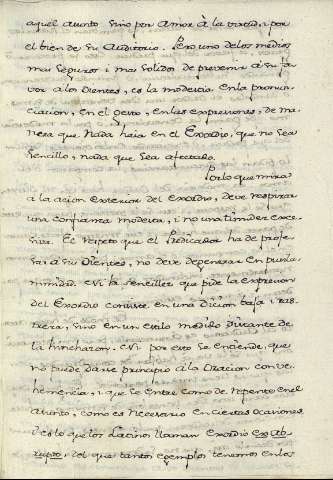 aquel asunto, sino por Amor À la virtud, i por
el bien de su Auditorio. Pero uno de los medios
mas seguros i mas solidos de prevenir a su fa
vor a los Oientes, es la modestia en la pronun
ciacion, en el gesto, en las expresiones, de ma
nera que nada haia en el Exordio, que no sea
sencillo, nada que sea afectado.
Por lo que mira
a la acion exterior del Exordio, deve respirar
una confianza modesta, i no una timidez exce
siva. El respeto que el Predicador ha de profe
sar a sus Oientes, no deve degenerar en pusila
nimidad. Ni la sencillez que pide la expresion
del Exordio consiste en una Dicion baja i ras
trera, sino en un estilo medido distante de
la hinchazon. Ni por esto se entiende, que
no puede darse principio a la Oracion con ve
hemencia, i que se entre como de repente en el
asunto, como es necesario en ciertas ocasiones
i es lo que los Latinos llaman Exordio ex Ab
rupto, del que tantos exemplos tenemos en los